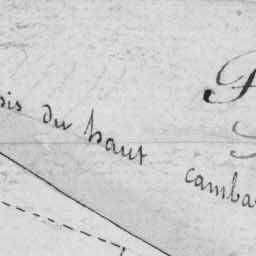 sis du haut camba